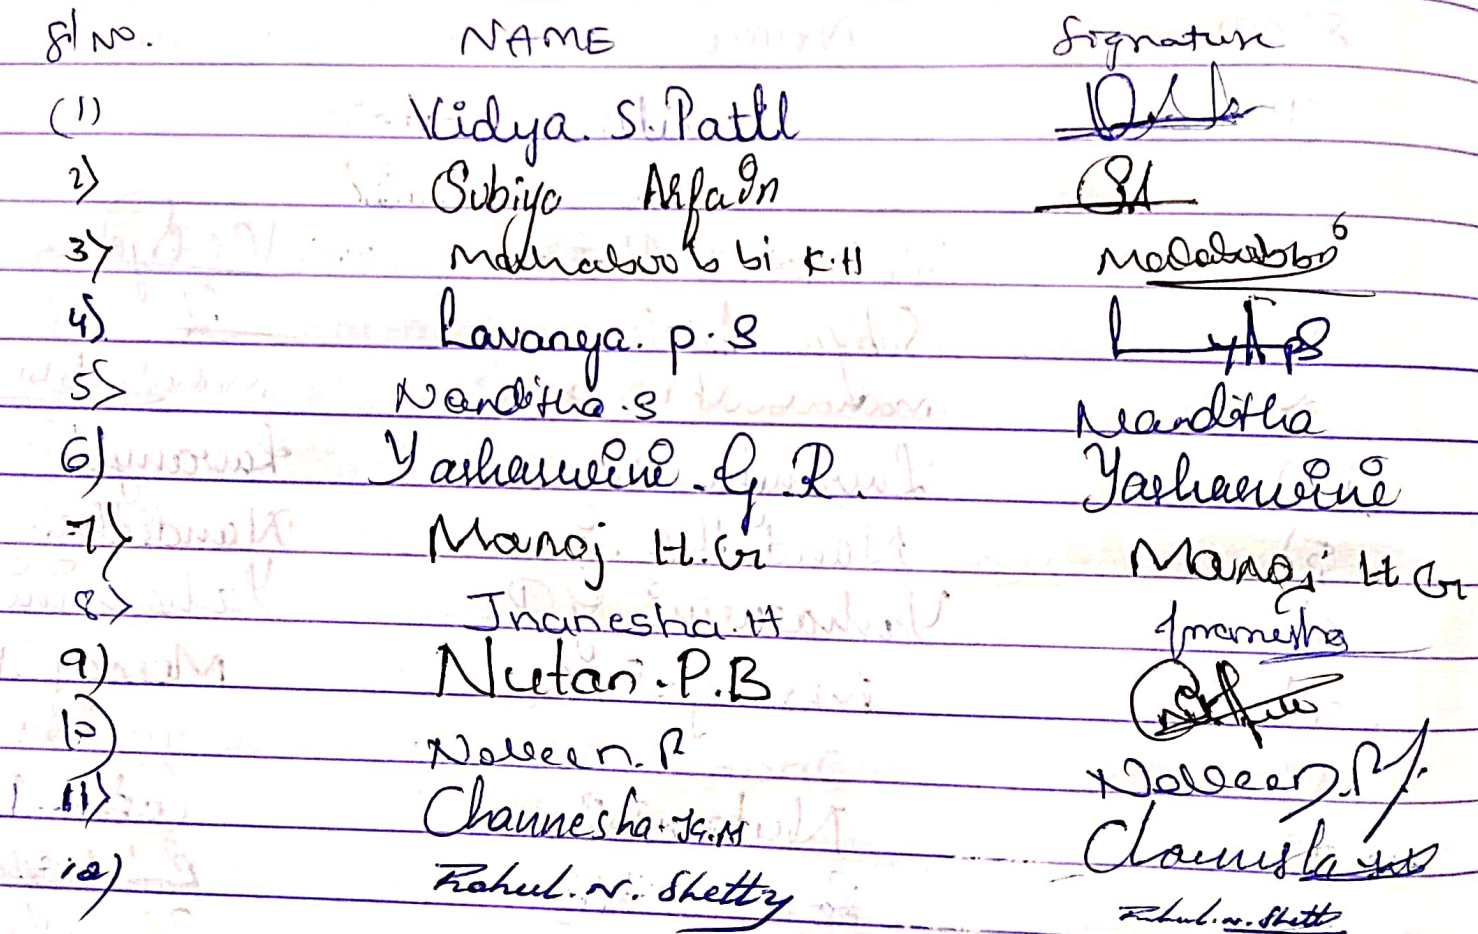 Sl No. NAME Signature
(1) Vidya. S. Patil
2) Subiya Arfa In SA
3) Mahaboob bi K.H
4) Lavanya. P. S
5) Nanditha. S Nanditha
6) Yashaswini. G. R. Yashaswini
7) Manoj H.G Manoj H G
8) Jnanesha. H Jnanesha
9) Nutan. P. B
10) Naveen. R Naveen. R
11) Channesha. K. M
12) Rahul. N. Shetty Rahul. N. Shetty